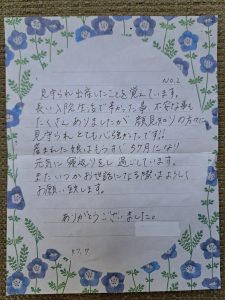 NO.2
見守られ出産したことを覚えています。
長い入院生活で辛かった事、不安な事も
たくさんありましたが、顔見知りの方々に
見守られとても心強かったです!!
産まれた娘はもうすぐ5ヶ月になり
元気に寝返りをし過ごしています。
またいつかお世話になる際はよろしく
お願い致します。
ありがとうございました。